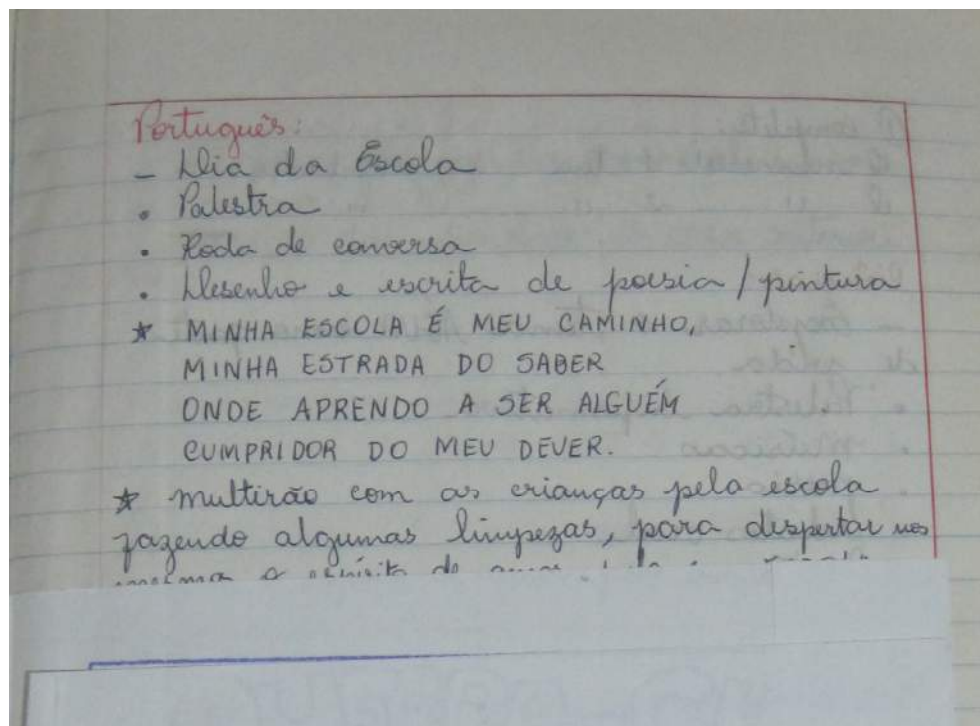 Português:
- Dia da Escola
• Palestra
• Roda de conversa
• Desenho e escrita de poesia / pintura
* MINHA ESCOLA É MEU CAMINHO,
MINHA ESTRADA DO SABER
ONDE APRENDO A SER ALGUÉM
CUMPRIDOR DO MEU DEVER.
* multirão com as crianças pela escola
fazendo algumas limpezas, para despertar nos